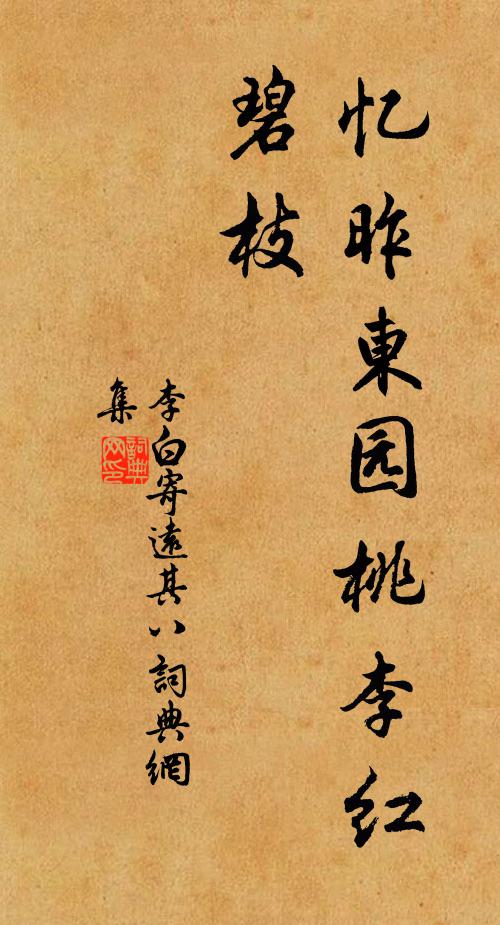 忆昨東园桃李红
碧枝
李白寄遠其八詞典網
集
詞典網印